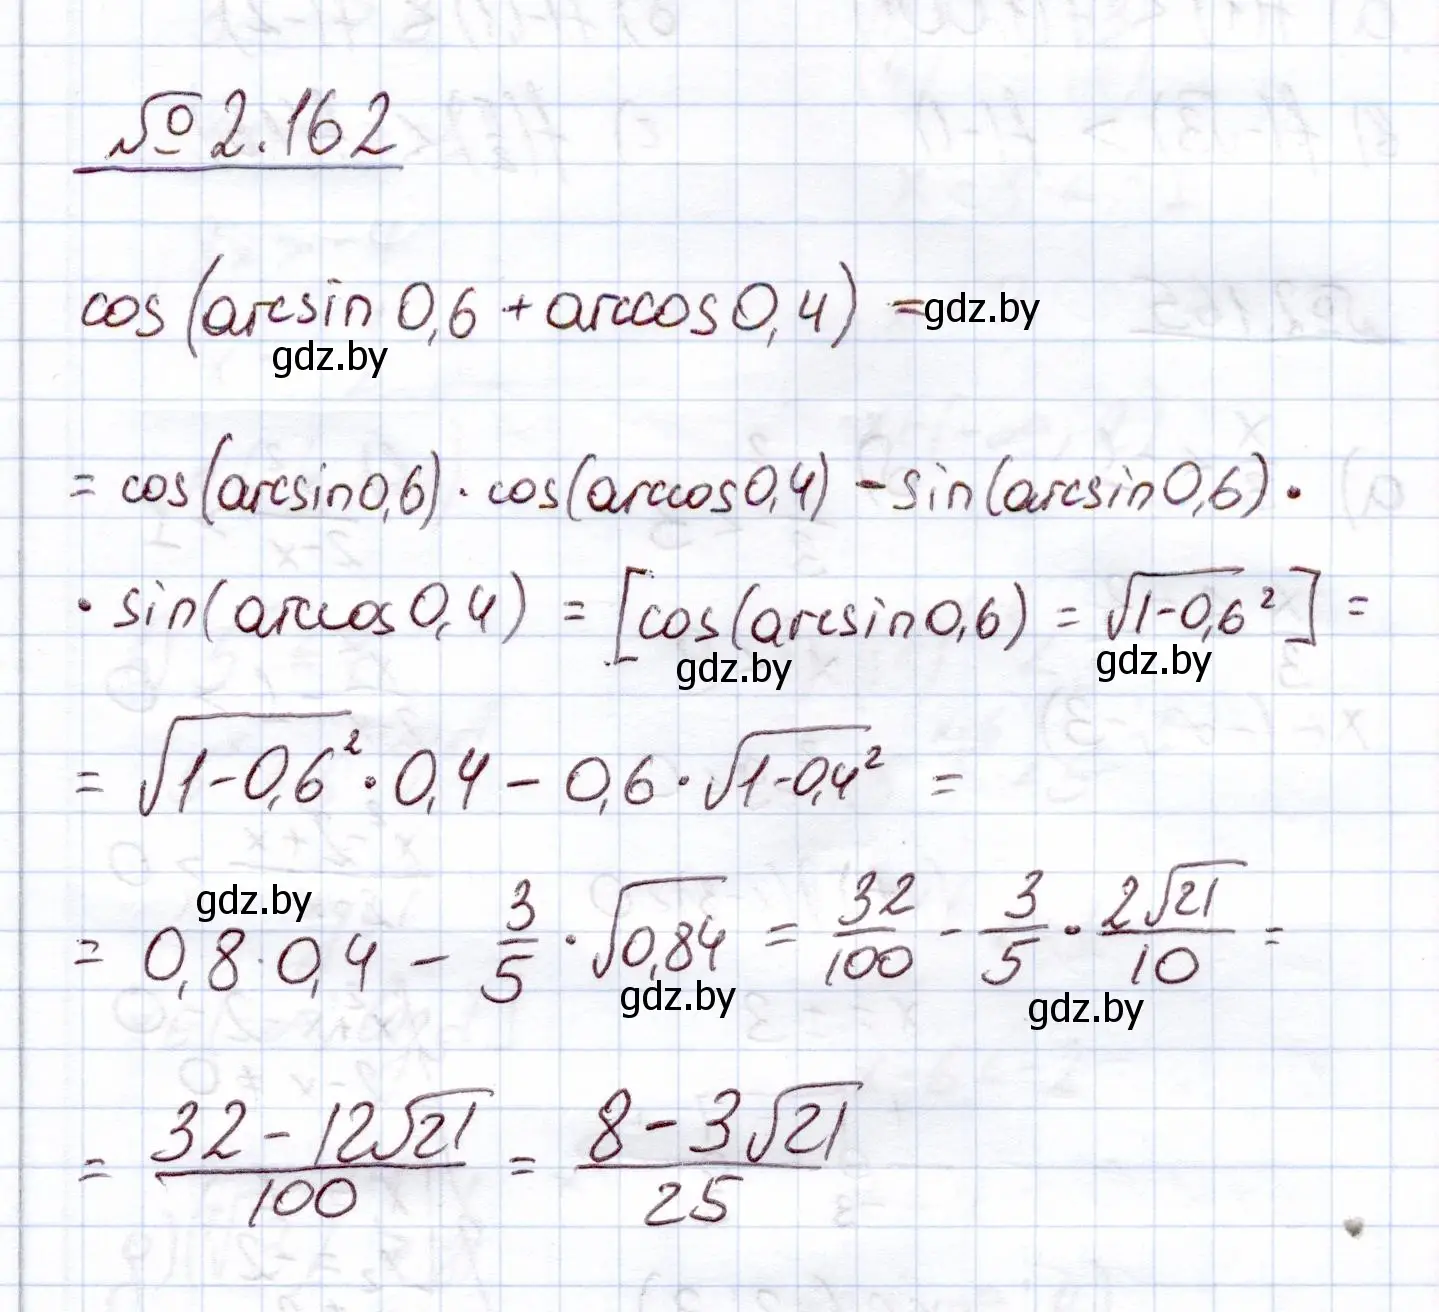 № 2.162
cos(arcsin 0,6 + arccos 0,4) = gdz.by
gdz.by
= cos(arcsin 0,6) · cos(arccos 0,4) - sin(arcsin 0,6) ·
· sin(arccos 0,4) = [cos(arcsin 0,6) = √(1-0,6²)] =
gdz.by gdz.by
= √(1-0,6²) · 0,4 - 0,6 · √(1-0,4²) =
gdz.by
= 0,8 · 0,4 - 3/5 · √0,84 = 32/100 - 3/5 · 2√21/10 =
gdz.by gdz.by
= (32 - 12√21)/100 = (8 - 3√21)/25